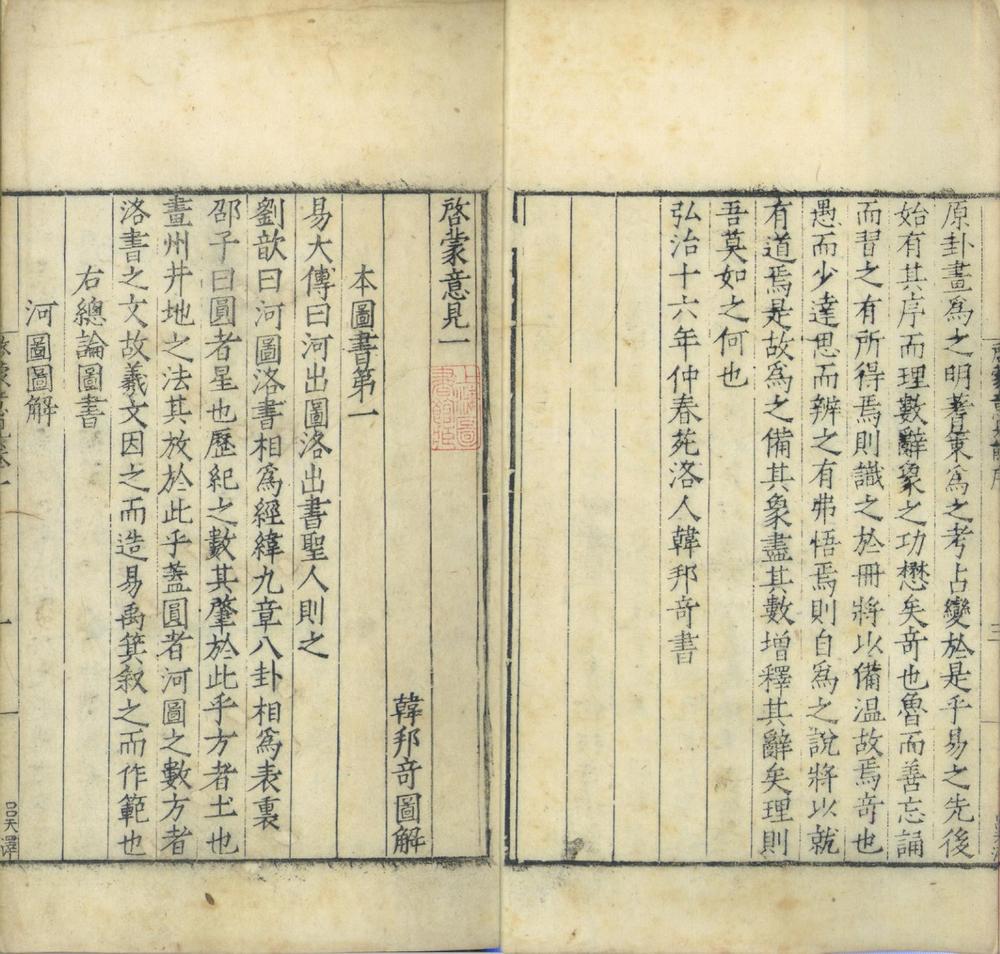 原卦畫爲之明蓍䇿爲之考占變於是乎易之先後
始有其序而理數辭象之功懋矣奇也魯而善忘誦
而習之有所得焉則識之於冊將以備温故焉奇也
愚而少達思而辨之有弗悟焉則自爲之說將以就
有道焉是故爲之備其象盡其數增釋其辭矣理則
吾莫如之何也
弘治十六年仲春苑洛人韓邦奇書
啓蒙意見一
韓邦奇圖解
本圖書第一
易大傳曰河出圖洛出書聖人則之
劉歆曰河圖洛書相爲經緯九章八卦相爲表裏
邵子曰圓者星也歷紀之數其肇於此乎方者土也
畫州井地之法其放於此乎蓋圓者河圖之數方者
洛書之文故羲文因之而造易禹箕叙之而作範也
右總論圖書
河圖圖解
呂天澤